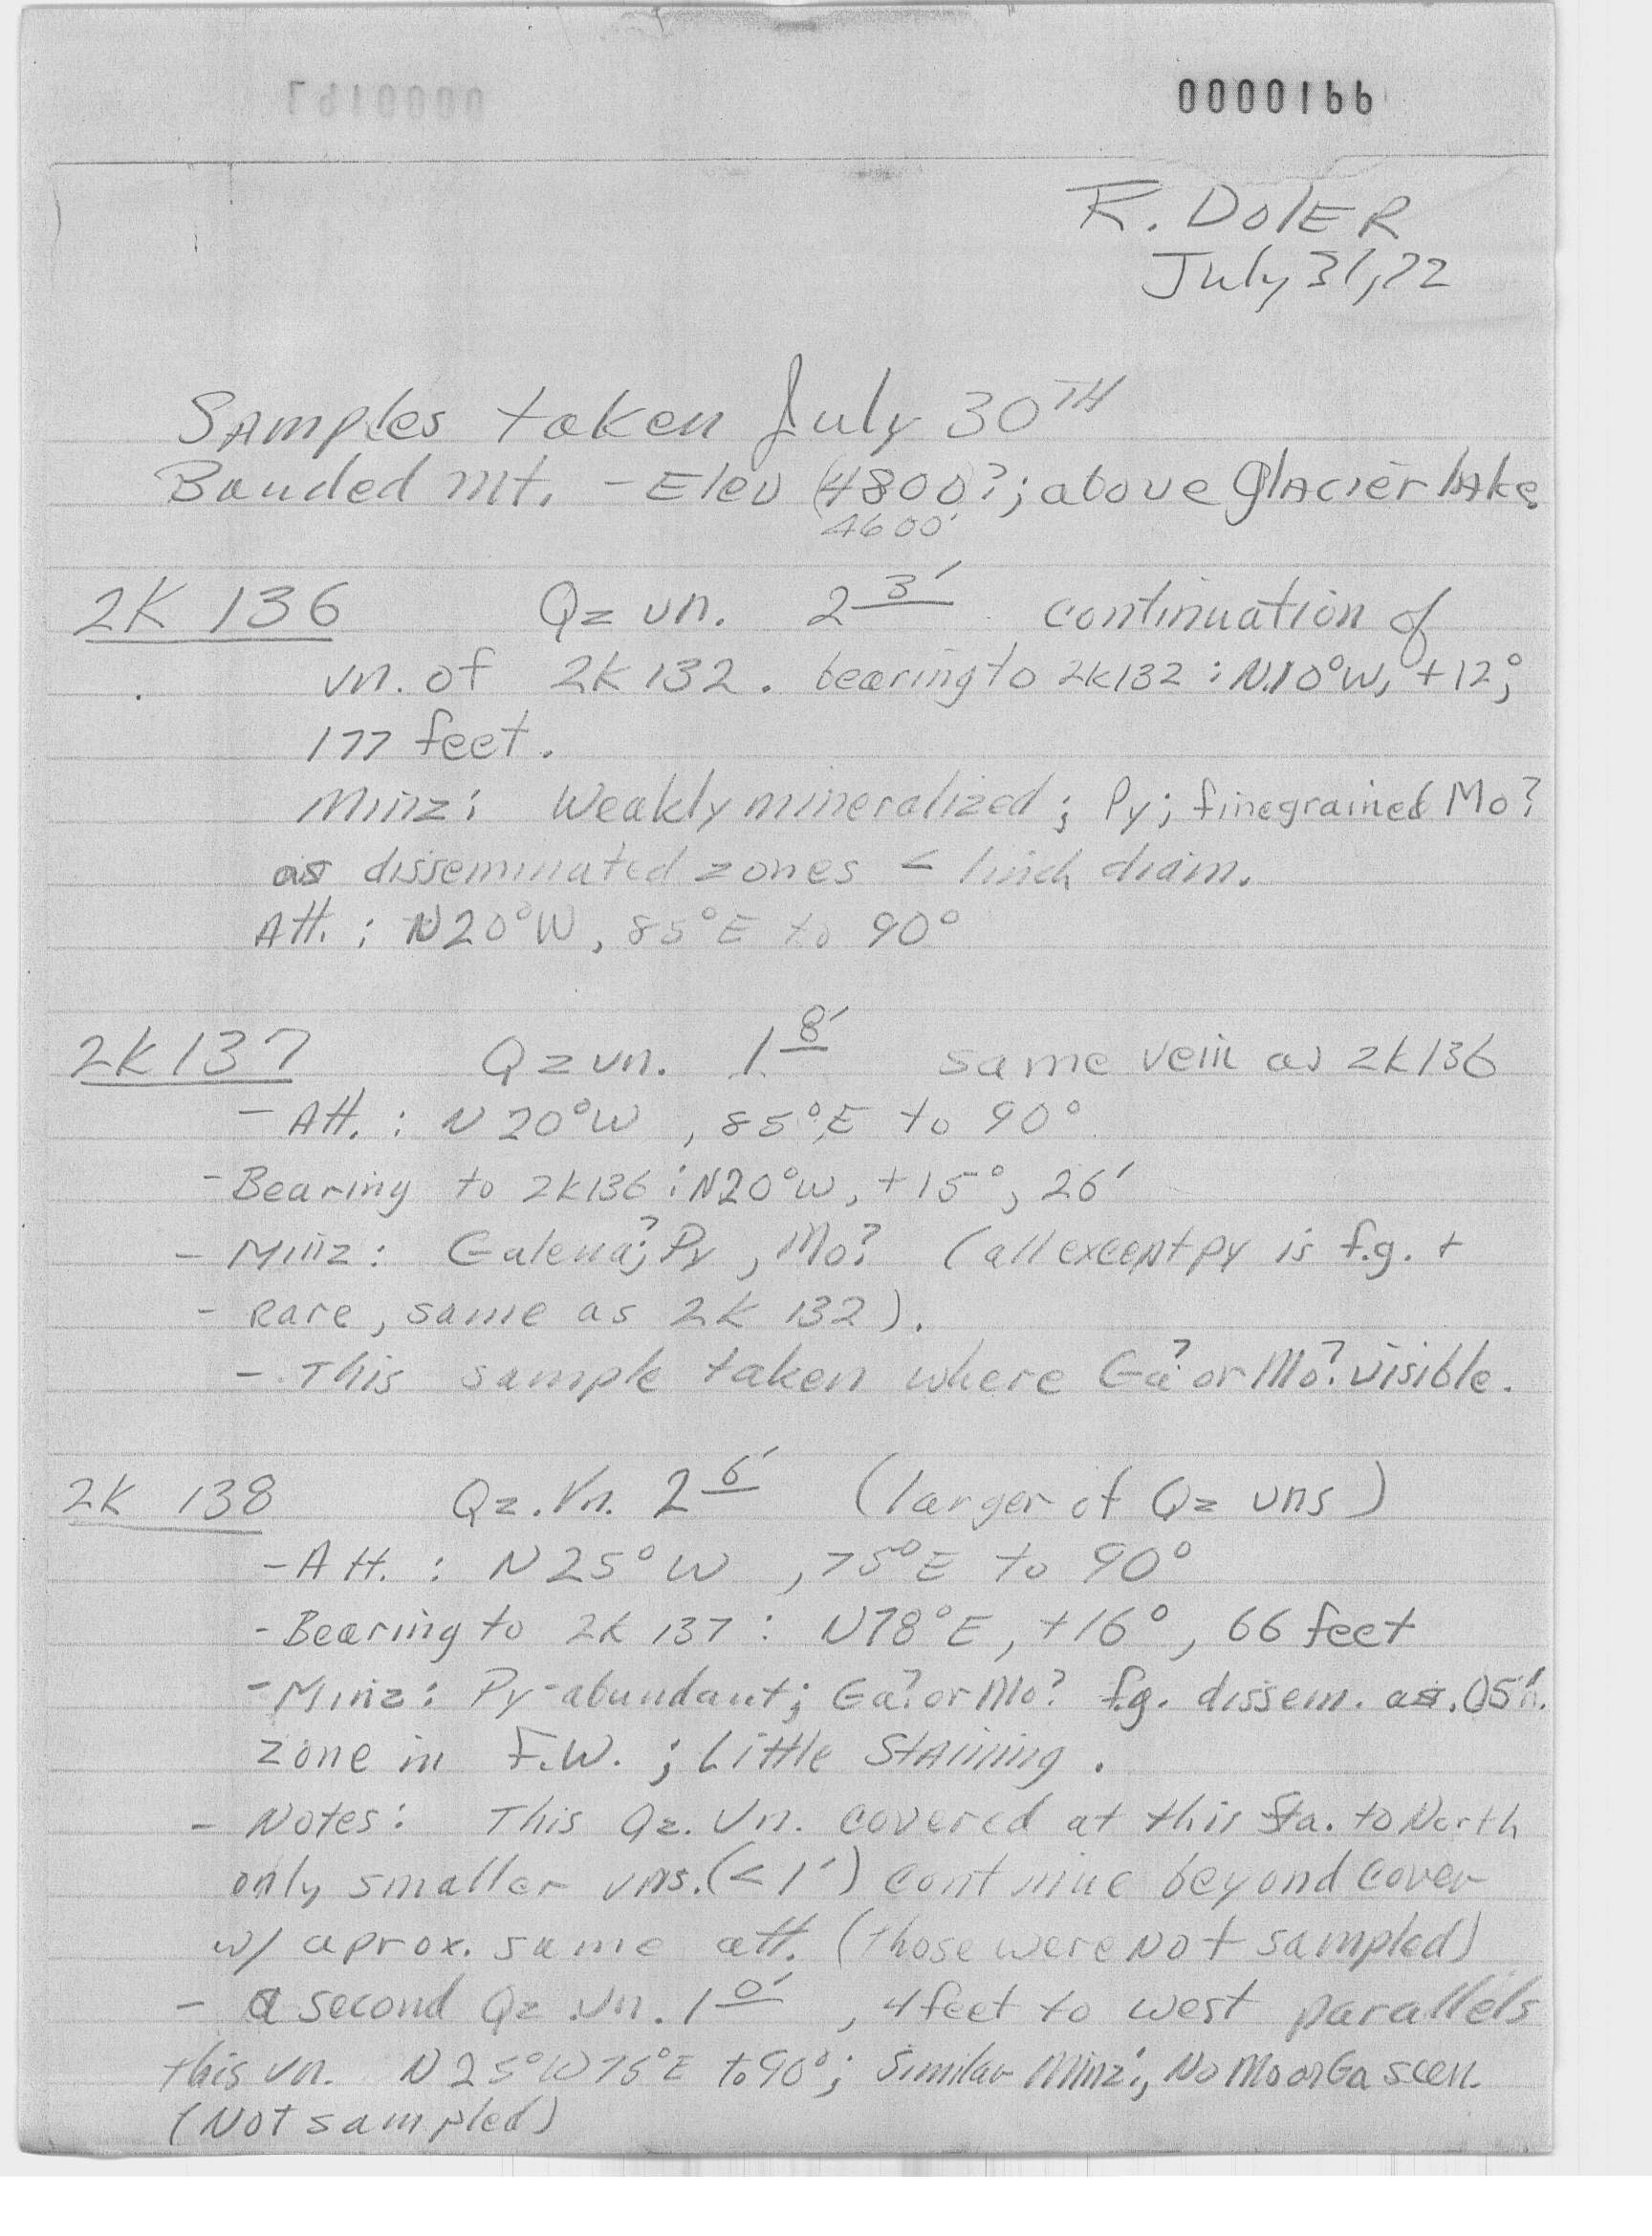 0000166
R. DOlER
July 31, 72
SAmples taken July 30TH
Banded Mt. - Elev (4800)?; above Glacier lake
4600'
2K 136 Qz vn. 2 3' continuation of
vn. of 2K 132. bearing to 2K132 : N10°W, +12°,
177 feet.
Minz: Weakly mineralized; Py; finegrained Mo?
as disseminated zones < 1 inch diam.
Att. : N20°W, 85°E to 90°
2K 137 Qz vn. 1 8' same vein as 2K136
- Att. : N 20°W, 85°E to 90°
- Bearing to 2K136 : N20°W, +15°, 26'
- Minz: Galena?; Py, Mo? (all except py is f.g. +
- Rare, same as 2K 132).
- This sample taken where Ga? or Mo? visible.
2K 138 Qz. Vn. 2 6' (larger of Qz vns)
- Att. : N25°W, 75°E to 90°
- Bearing to 2K 137 : N78°E, +16°, 66 feet
- Minz: Py-abundant; Ga? or Mo? f.g. dissem. as .05
zone in F.W. ; Little Staining.
- Notes: This Qz. Vn. covered at this Sta. to North
only smaller vns. (< 1') continue beyond cover
w/ aprox. same att. (Those were Not sampled)
- a second Qz. Vn. 1 0', 4 feet to west parallels
this vn. N25°W 75°E to 90°; Similar Minz; No Mo or Ga seen.
(Not sampled)